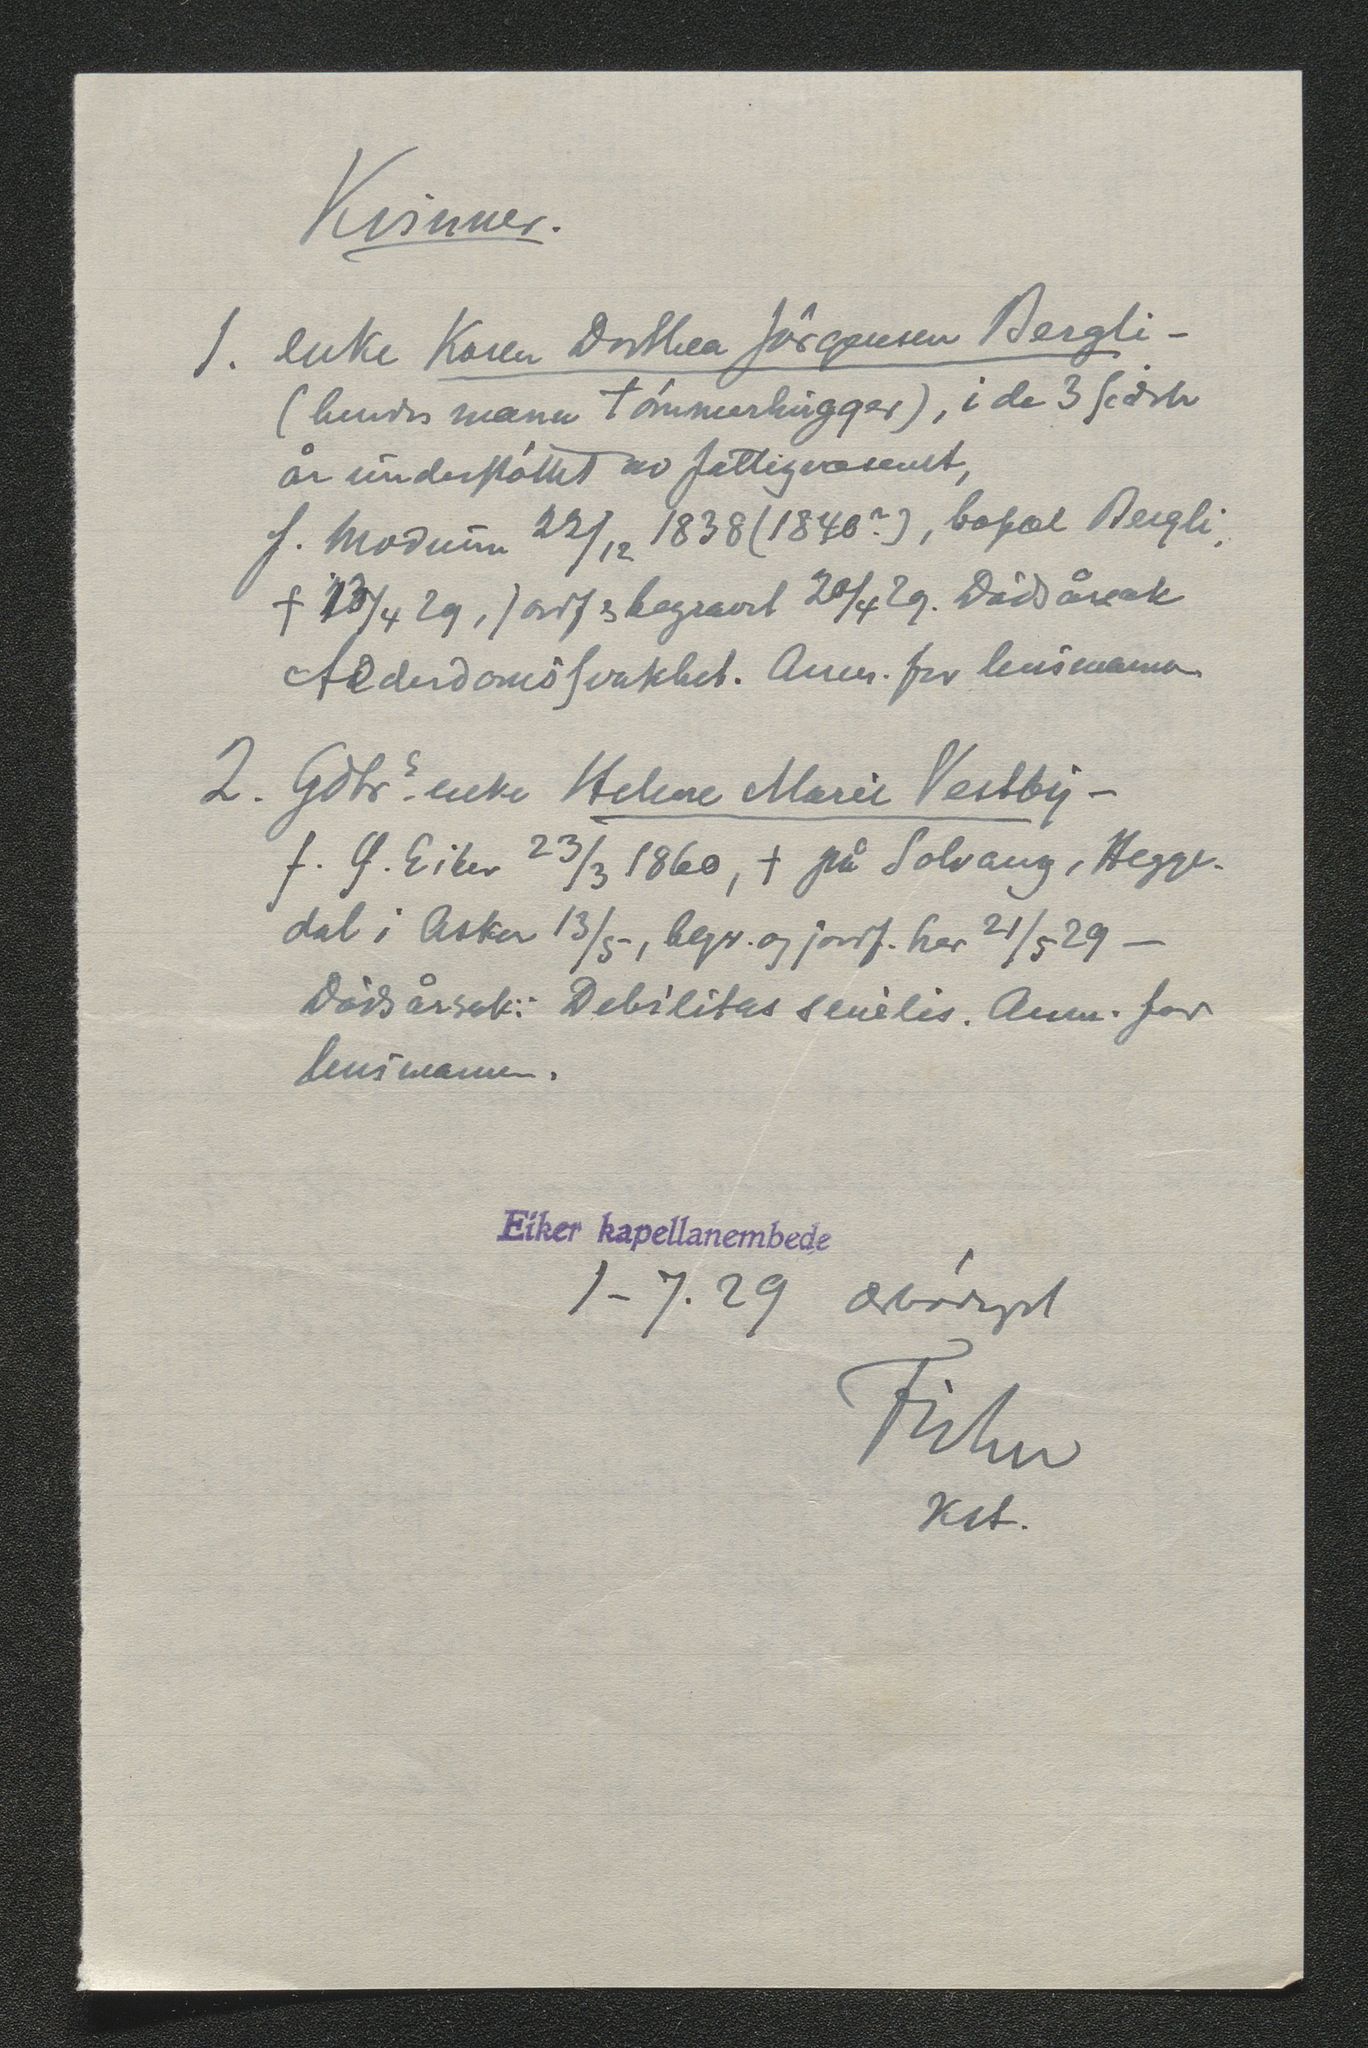 Kvinner.
1. enke Karen Dorthea Jörgensen Bergli -
(hendes mann tömmerhugger), i de 3 sidste
år understöttet av fattigvæsenet,
f. Modum 22/12 1838 (1840?), bopæl Bergli,
† 13/4 29, jordf. & begravet 20/4 29. Dödsårsak
Alderdomssvakhet. Anm. for lensmann
2. Gdbrs. enke Helene Marie Vestby -
f. Ø. Eiker 23/3 1860, † på Solvang, Hegge-
dal i Asker 13/5, begr. og jordf. her 21/5 29 -
Dödsårsak: Debilitas senilis. Anm. for
lensmannen.
Eiker kapellanembede
1-7.29 ærbödigst
Kst.